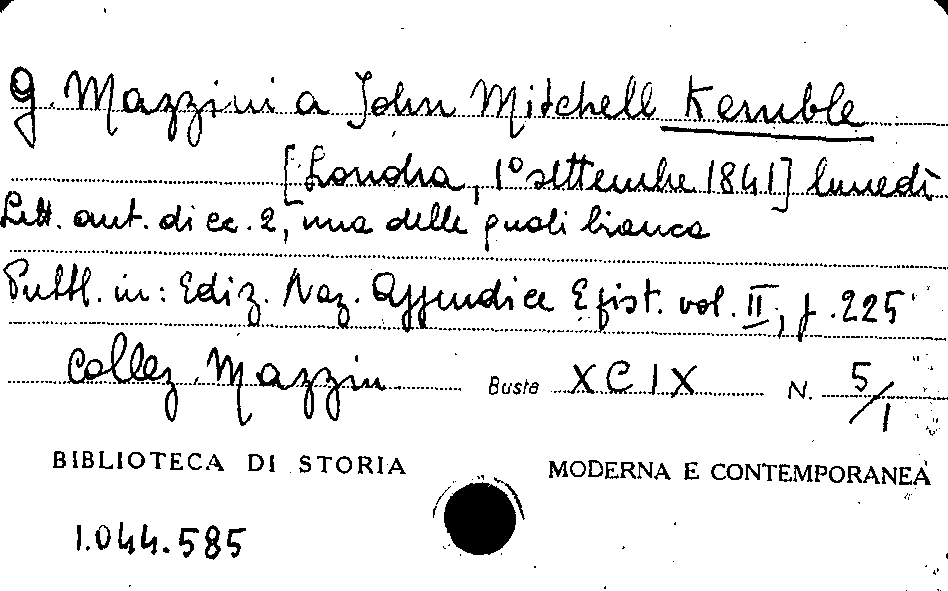 G. Mazzini a John Mitchell Kemble
[Londra, 1° settembre 1841] lunedì
Lett. aut. di cc. 2, una delle quali bianca
Pubbl. in: Ediz. Naz. Appendice Epist. vol. II, p. 225
Collez. Mazzini Busta XCIX N. 5/1
BIBLIOTECA DI STORIA MODERNA E CONTEMPORANEA
1.044.585